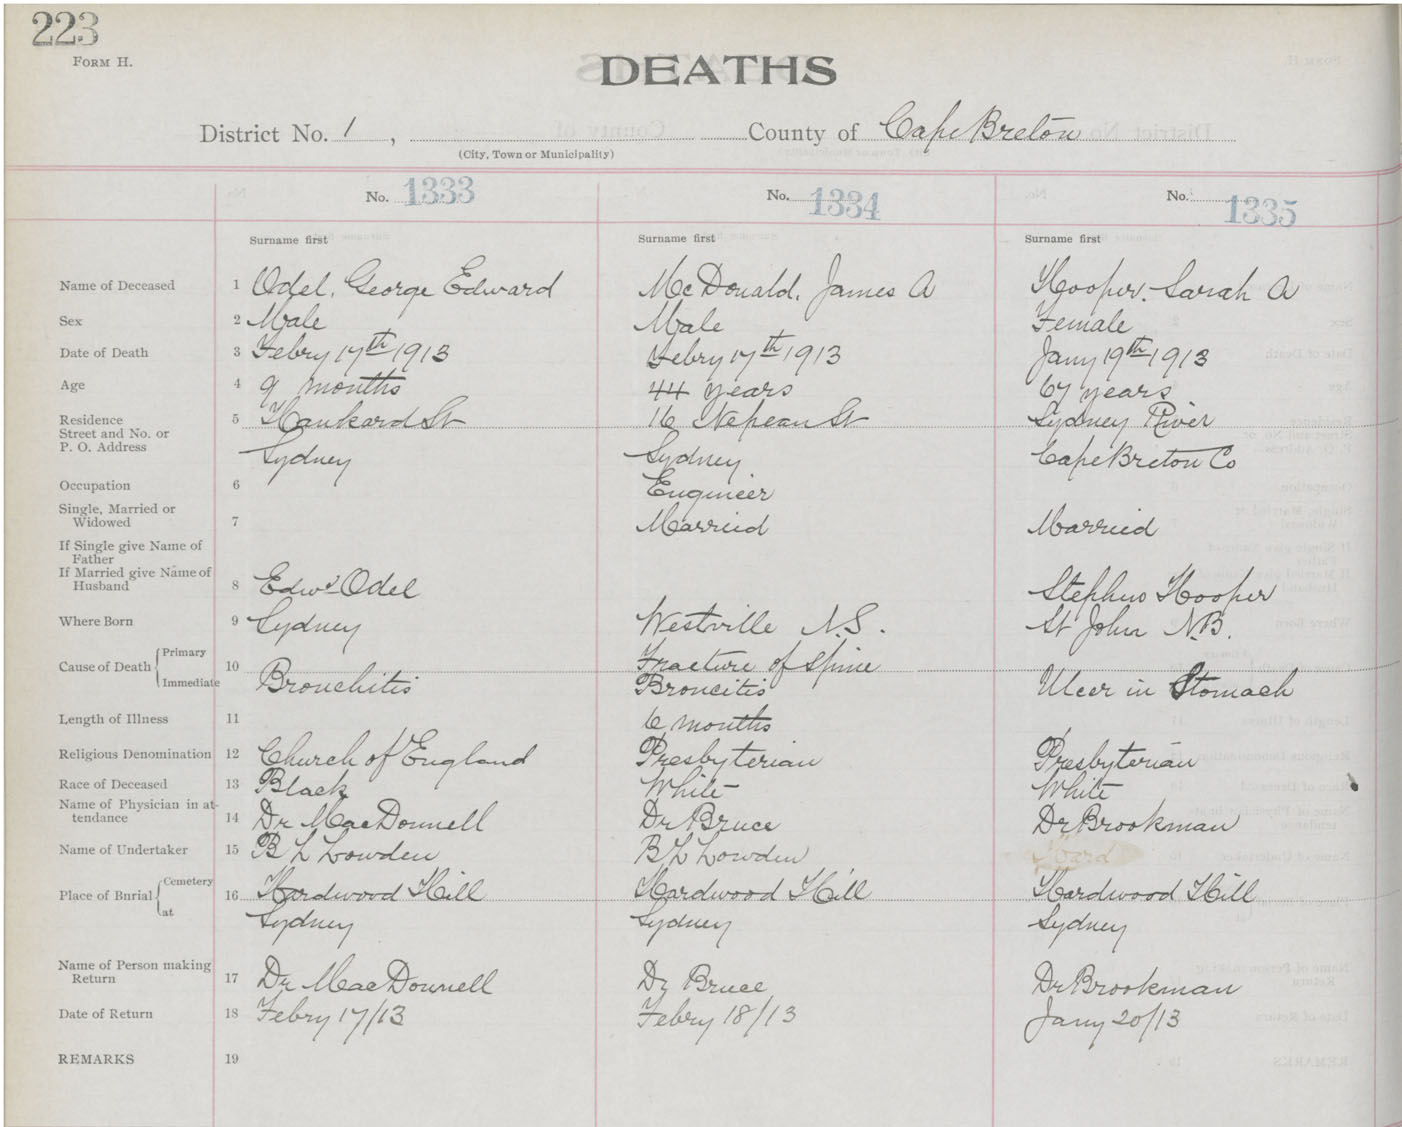 223
FORM H.
DEATHS
District No. 1, County of Cape Breton
(City, Town or Municipality)
No. 1333 No. 1334 No. 1335
Surname first Surname first Surname first
Name of Deceased 1 Odel, George Edward McDonald, James A Hooper, Sarah A
Sex 2 Male Male Female
Date of Death 3 Febry 17th 1913 Febry 17th 1913 Jany 19th 1913
Age 4 9 months 44 years 67 years
Residence 5 Hankard St 16 Nepean St Sydney River
Street and No. or
P. O. Address Sydney Sydney Cape Breton Co
Occupation 6 Engineer
Single, Married or
Widowed 7 Married Married
If Single give Name of
Father
If Married give Name of
Husband 8 Edwd Odel Stephen Hooper
Where Born 9 Sydney Westville N.S. St John N.B.
Cause of Death { Primary 10 Fracture of Spine
Immediate Bronchitis Broncitis Ulcer in Stomach
Length of Illness 11 6 months
Religious Denomination 12 Church of England Presbyterian Presbyterian
Race of Deceased 13 Black White White
Name of Physician in at-
tendance 14 Dr MacDonnell Dr Bruce Dr Brookman
Name of Undertaker 15 B L Lowden B L Lowden
Place of Burial { Cemetery 16 Hardwood Hill Hardwood Hill Hardwood Hill
at Sydney Sydney Sydney
Name of Person making
Return 17 Dr MacDonnell Dr Bruce Dr Brookman
Date of Return 18 Febry 17/13 Febry 18/13 Jany 20/13
REMARKS 19